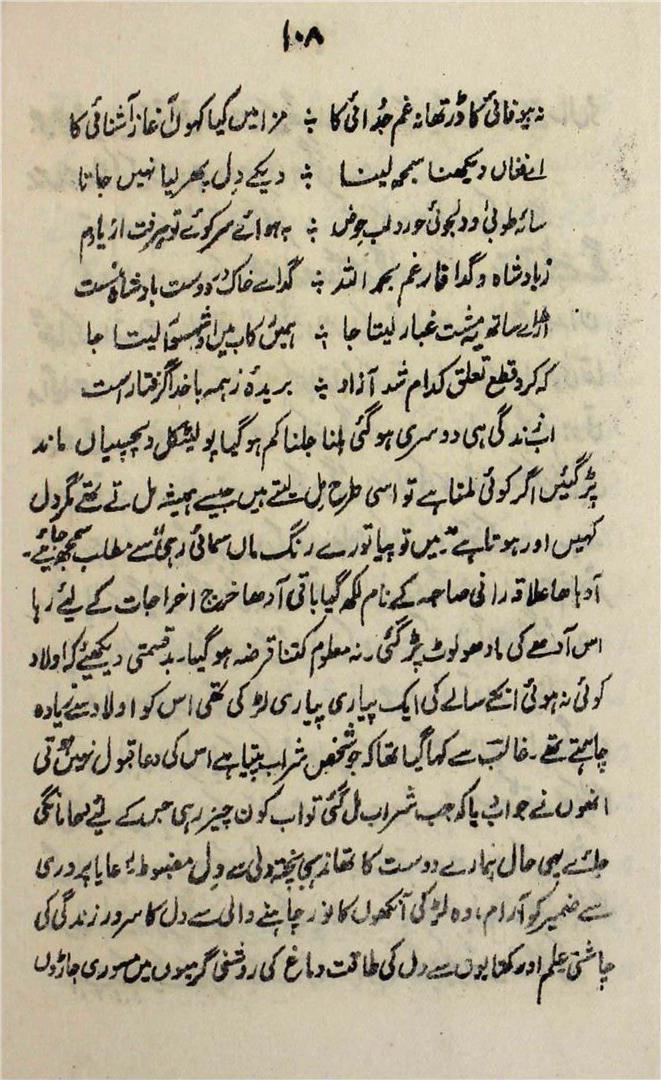 ۱۰۸
نہ بیوفائی کا ڈر تھا نہ غم جُدائی کا ؞ مزا میں کیا کہوں آغاز آشنائی کا
اے فغاں دیکھنا سمجھ لینا ؞ دیکے دِل پھر لیا نہیں جاتا
سایہ طوبیٰ و دلجوئی حور و لب حوض ؞ بہوائے سر کوئے تو برفت از یادم
ز بادشاہ و گدا فارغم بحمد اللہ ؞ گدائے خاک در دوست بادشاہ منست
ساتھ یہ مشت غبار لیتا جا ؞ ہمیں رکاب میں او شہسوار لیتا جا
کہ کرد قطع تعلق کدام شد آزاد ؞ بریدۂ ز ہمہ باخدا گرفتار است
اب زندگی ہی دوسری ہو گئی ملنا جلنا کم ہو گیا پولیٹکل دلچسپیاں ماند
پڑ گئیں اگر کوئی ملتا ہے تو اسی طرح مِل لیتے ہیں جیسے ہمیشہ مل تے تھے مگر دل
کہیں اور ہوتا ہے "میں تو پیا تورے رنگ ماں سمائی رہی" سے مطلب سمجھ جائیے۔
آدہا علاقہ رانی صاحبہ کے نام لکھ گیا باقی آدھا خرچ اخراجات کے لیئے رہا
اس آدھے کی مادھو لوٹ پڑ گئی۔ نہ معلوم کتنا قرضہ ہو گیا۔ بدقسمتی دیکھیئے کہ اولاد
کوئی نہ ہوئی انکے سالے کی ایک پیاری پیاری لڑکی تھی اس کو اولاد سے زیادہ
چاہتے تھے۔ غالب سے کہا گیا تھا کہ جو شخص شراب پیتا ہے اس کی دعا قبول نہیں ہوتی
انھوں نے جواب دیا کہ جب شراب مل گئی تو اب کون چیز رہی جس کے لئے دعا مانگی
جائے یہی حال ہمارے دوست کا تھا مذہبی پختہ دلی سے دِل مضبوط رعایا پروری
سے ضمیر کو آرام، وہ لڑکی آنکھوں کا نور چاہنے والی سے دل کا سرور زندگی کی
چاشنی عِلم اور کتابوں سے دل کی طاقت دماغ کی روشنی گرمیوں میں مسوری جاڑوں